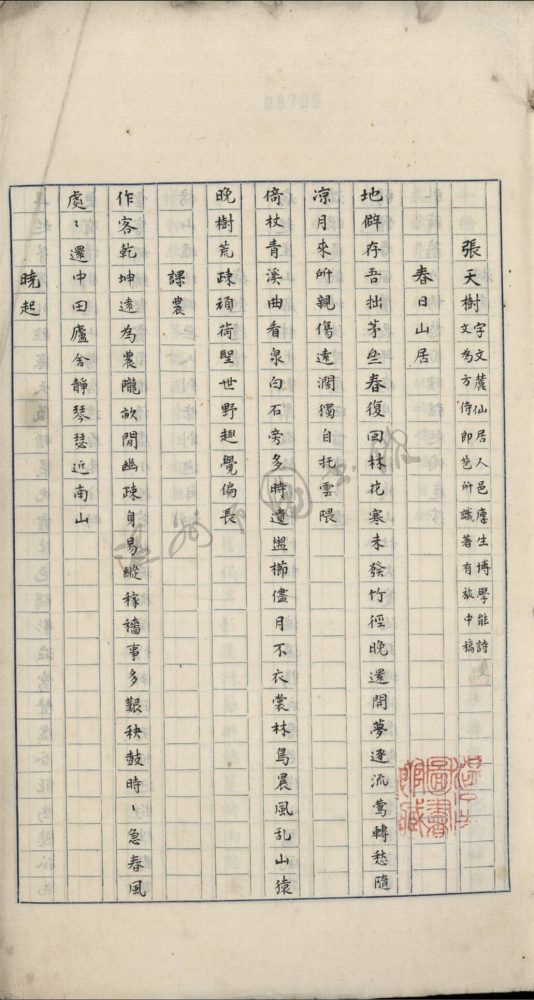 張天樹字文麓仙居人邑廩生博學能詩文
文為方侍郎苞所識著有旅中稿
春日山居
地僻存吾拙茅堂春復回林花寒未發竹徑晚還開夢逐流鶯轉愁隨
凉月來所親傷遠濶獨自托雲隈
倚杖青溪曲看泉白石旁多時遺盥櫛儘月不衣裳林鳥晨風乱山猿
晚樹荒疎頑荷聖世野趣覺偏長
課農
作客乾坤遠為農隴畝閒幽疎身易縱稼穡事多艱秧鼓時〻急春風
處〻還中田廬舍靜琴瑟近南山
晓起
圖書
館藏